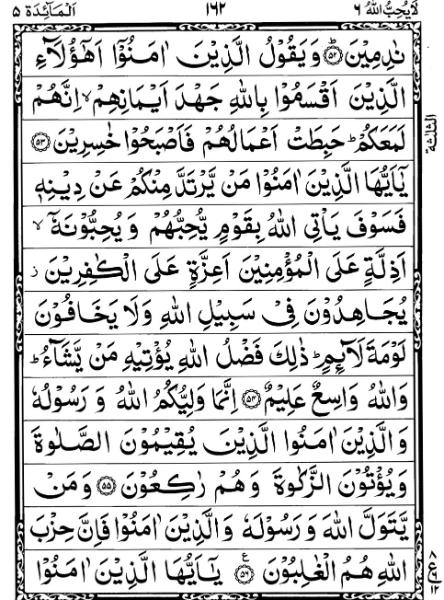 لَايُحِبُّ اللّٰهُ ٦
١٦٢
اَلْمَآئِدَة ٥
نٰدِمِيْنَ ؕ﴿٥٢﴾ وَيَقُوْلُ الَّذِيْنَ اٰمَنُوْۤا اَهٰۤؤُلَآءِ
الَّذِيْنَ اَقْسَمُوْا بِاللّٰهِ جَهْدَ اَيْمَانِهِمْ ۙ اِنَّهُمْ
لَمَعَكُمْ ؕ حَبِطَتْ اَعْمَالُهُمْ فَاَصْبَحُوْا خٰسِرِيْنَ ﴿٥٣﴾
يٰۤاَيُّهَا الَّذِيْنَ اٰمَنُوْا مَنْ يَّرْتَدَّ مِنْكُمْ عَنْ دِيْنِهٖ
فَسَوْفَ يَاْتِى اللّٰهُ بِقَوْمٍ يُّحِبُّهُمْ وَيُحِبُّوْنَهٗۤ ۙ
اَذِلَّةٍ عَلَى الْمُؤْمِنِيْنَ اَعِزَّةٍ عَلَى الْكٰفِرِيْنَ ز
يُجَاهِدُوْنَ فِىْ سَبِيْلِ اللّٰهِ وَلَا يَخَافُوْنَ
لَوْمَةَ لَآئِمٍ ؕ ذٰلِكَ فَضْلُ اللّٰهِ يُؤْتِيْهِ مَنْ يَّشَآءُ ؕ
وَاللّٰهُ وَاسِعٌ عَلِيْمٌ ﴿٥٤﴾ اِنَّمَا وَلِيُّكُمُ اللّٰهُ وَرَسُوْلُهٗ
وَالَّذِيْنَ اٰمَنُوا الَّذِيْنَ يُقِيْمُوْنَ الصَّلٰوةَ
وَيُؤْتُوْنَ الزَّكٰوةَ وَهُمْ رٰكِعُوْنَ ﴿٥٥﴾ وَمَنْ
يَّتَوَلَّ اللّٰهَ وَرَسُوْلَهٗ وَالَّذِيْنَ اٰمَنُوْا فَاِنَّ حِزْبَ
اللّٰهِ هُمُ الْغٰلِبُوْنَ ﴿٥٦﴾ ع يٰۤاَيُّهَا الَّذِيْنَ اٰمَنُوْا
الثلٰثة